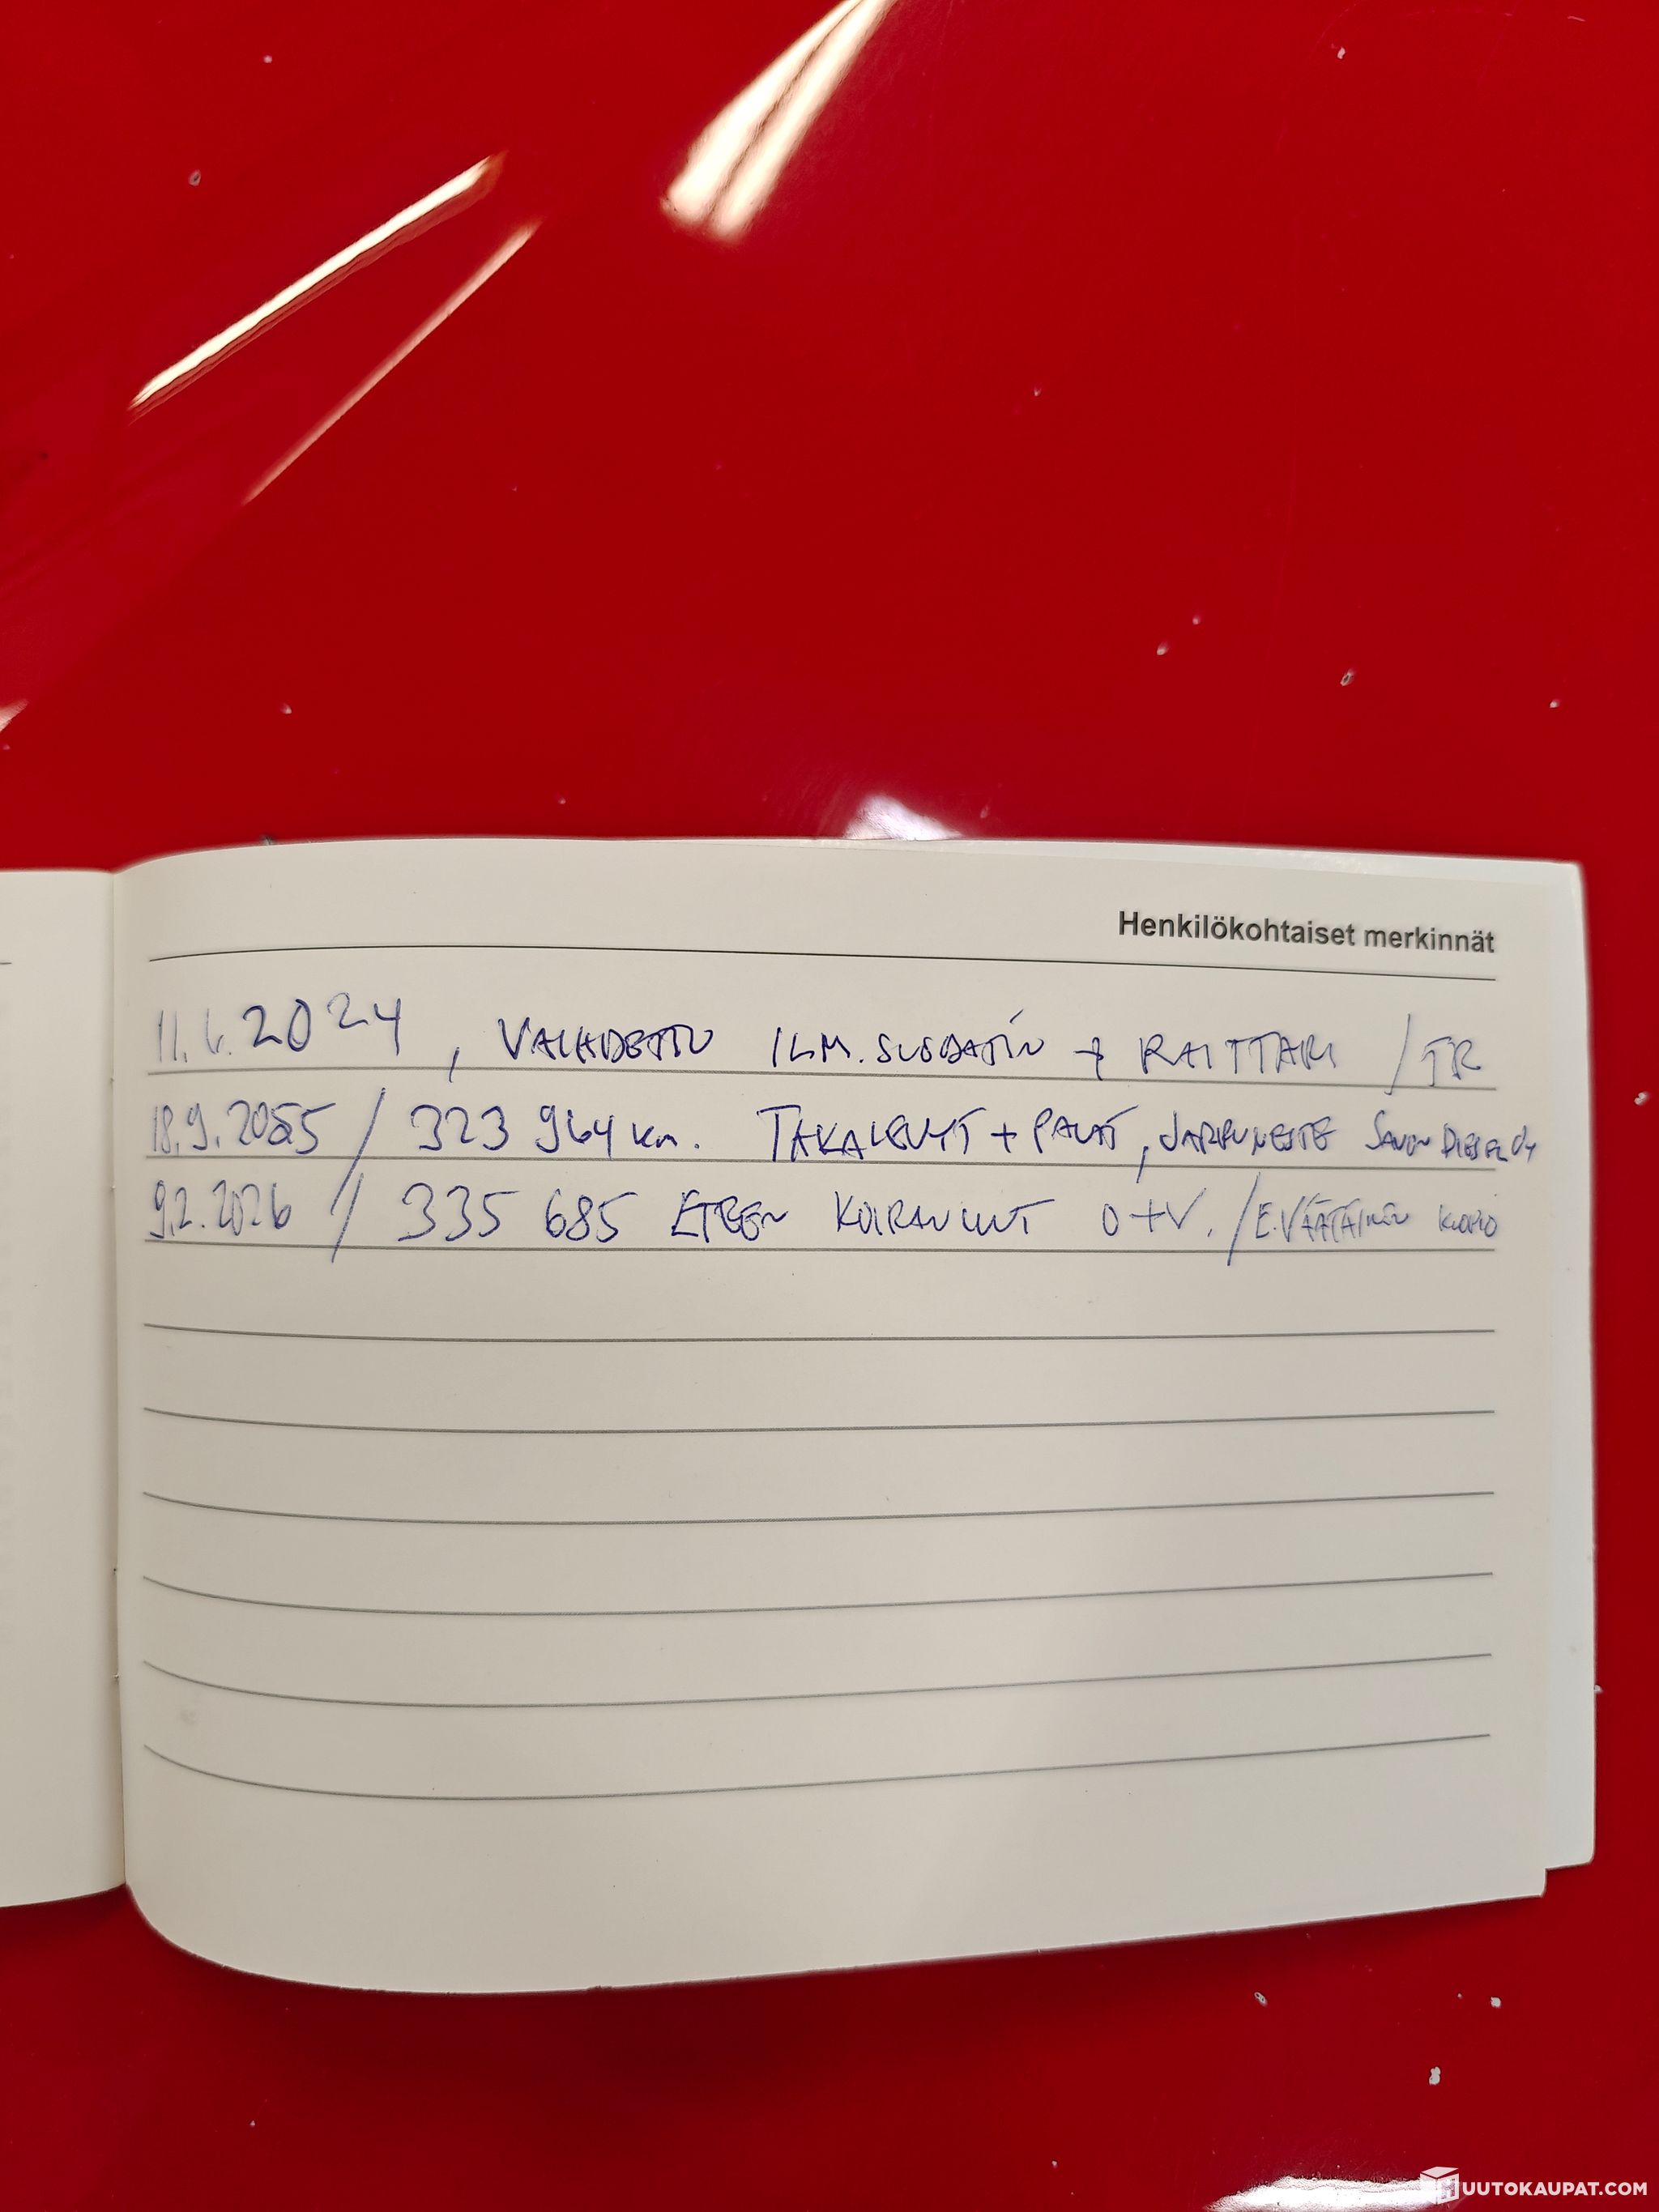 Henkilökohtaiset merkinnät
11.6.2024, VAIHDETTU ILM.SUODATIN + RAITTARI /TR
18.9.2025 / 323 964 km. TAKALEVYT + PALAT, JARRUNESTE SAVON DIESEL OY
9.2.2026 / 335 685 ETEEN KOIRANLUUT O+V. /E.VÄÄTÄINEN KUOPIO
HUUTOKAUPAT.COM